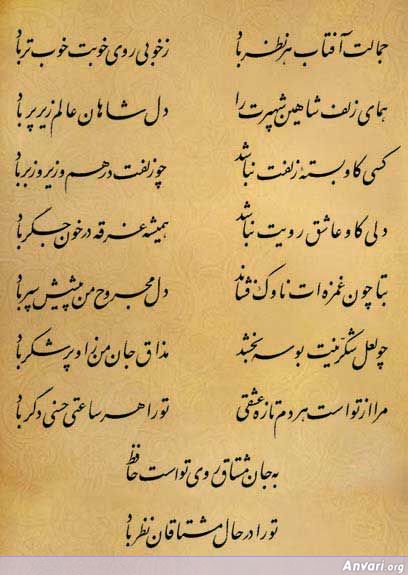 جمالت آفتاب هر نظر باد ز خوبی روی خوبت خوب تر باد
همای زلف شاهین شهپرت را دل شاهان عالم زیر پر باد
کسی کاو بستهٔ زلفت نباشد چو زلفت درهم و زیر و زبر باد
دلی کاو عاشق رویت نباشد همیشه غرقه در خون جگر باد
بتا چون غمزه‌ات ناوک فشاند دل مجروح من پیشش سپر باد
چو لعل شکرینت بوسه بخشد مذاق جان من زاو پر شکر باد
مرا از تواست هر دم تازه عشقی تو را هر ساعتی حسنی دگر باد
به جان مشتاق روی تواست حافظ
تو را در حال مشتاقان نظر باد
Anvari.org